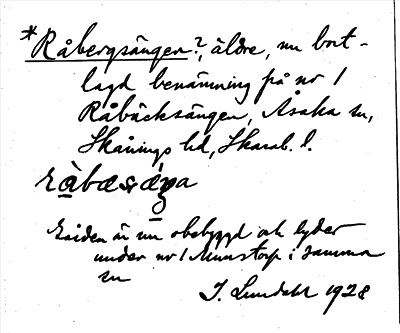 *Råbergsängen?, äldre, nu bort-
lagd benämning på nr 1
Råbäcksängen, Åsaka sn,
Skånings hd, Skarab. l.
ràbæsæŋa
är nu obebyggd och lyder
under nr 1 Munstorp i samma
sn
J. Lundahl 1928